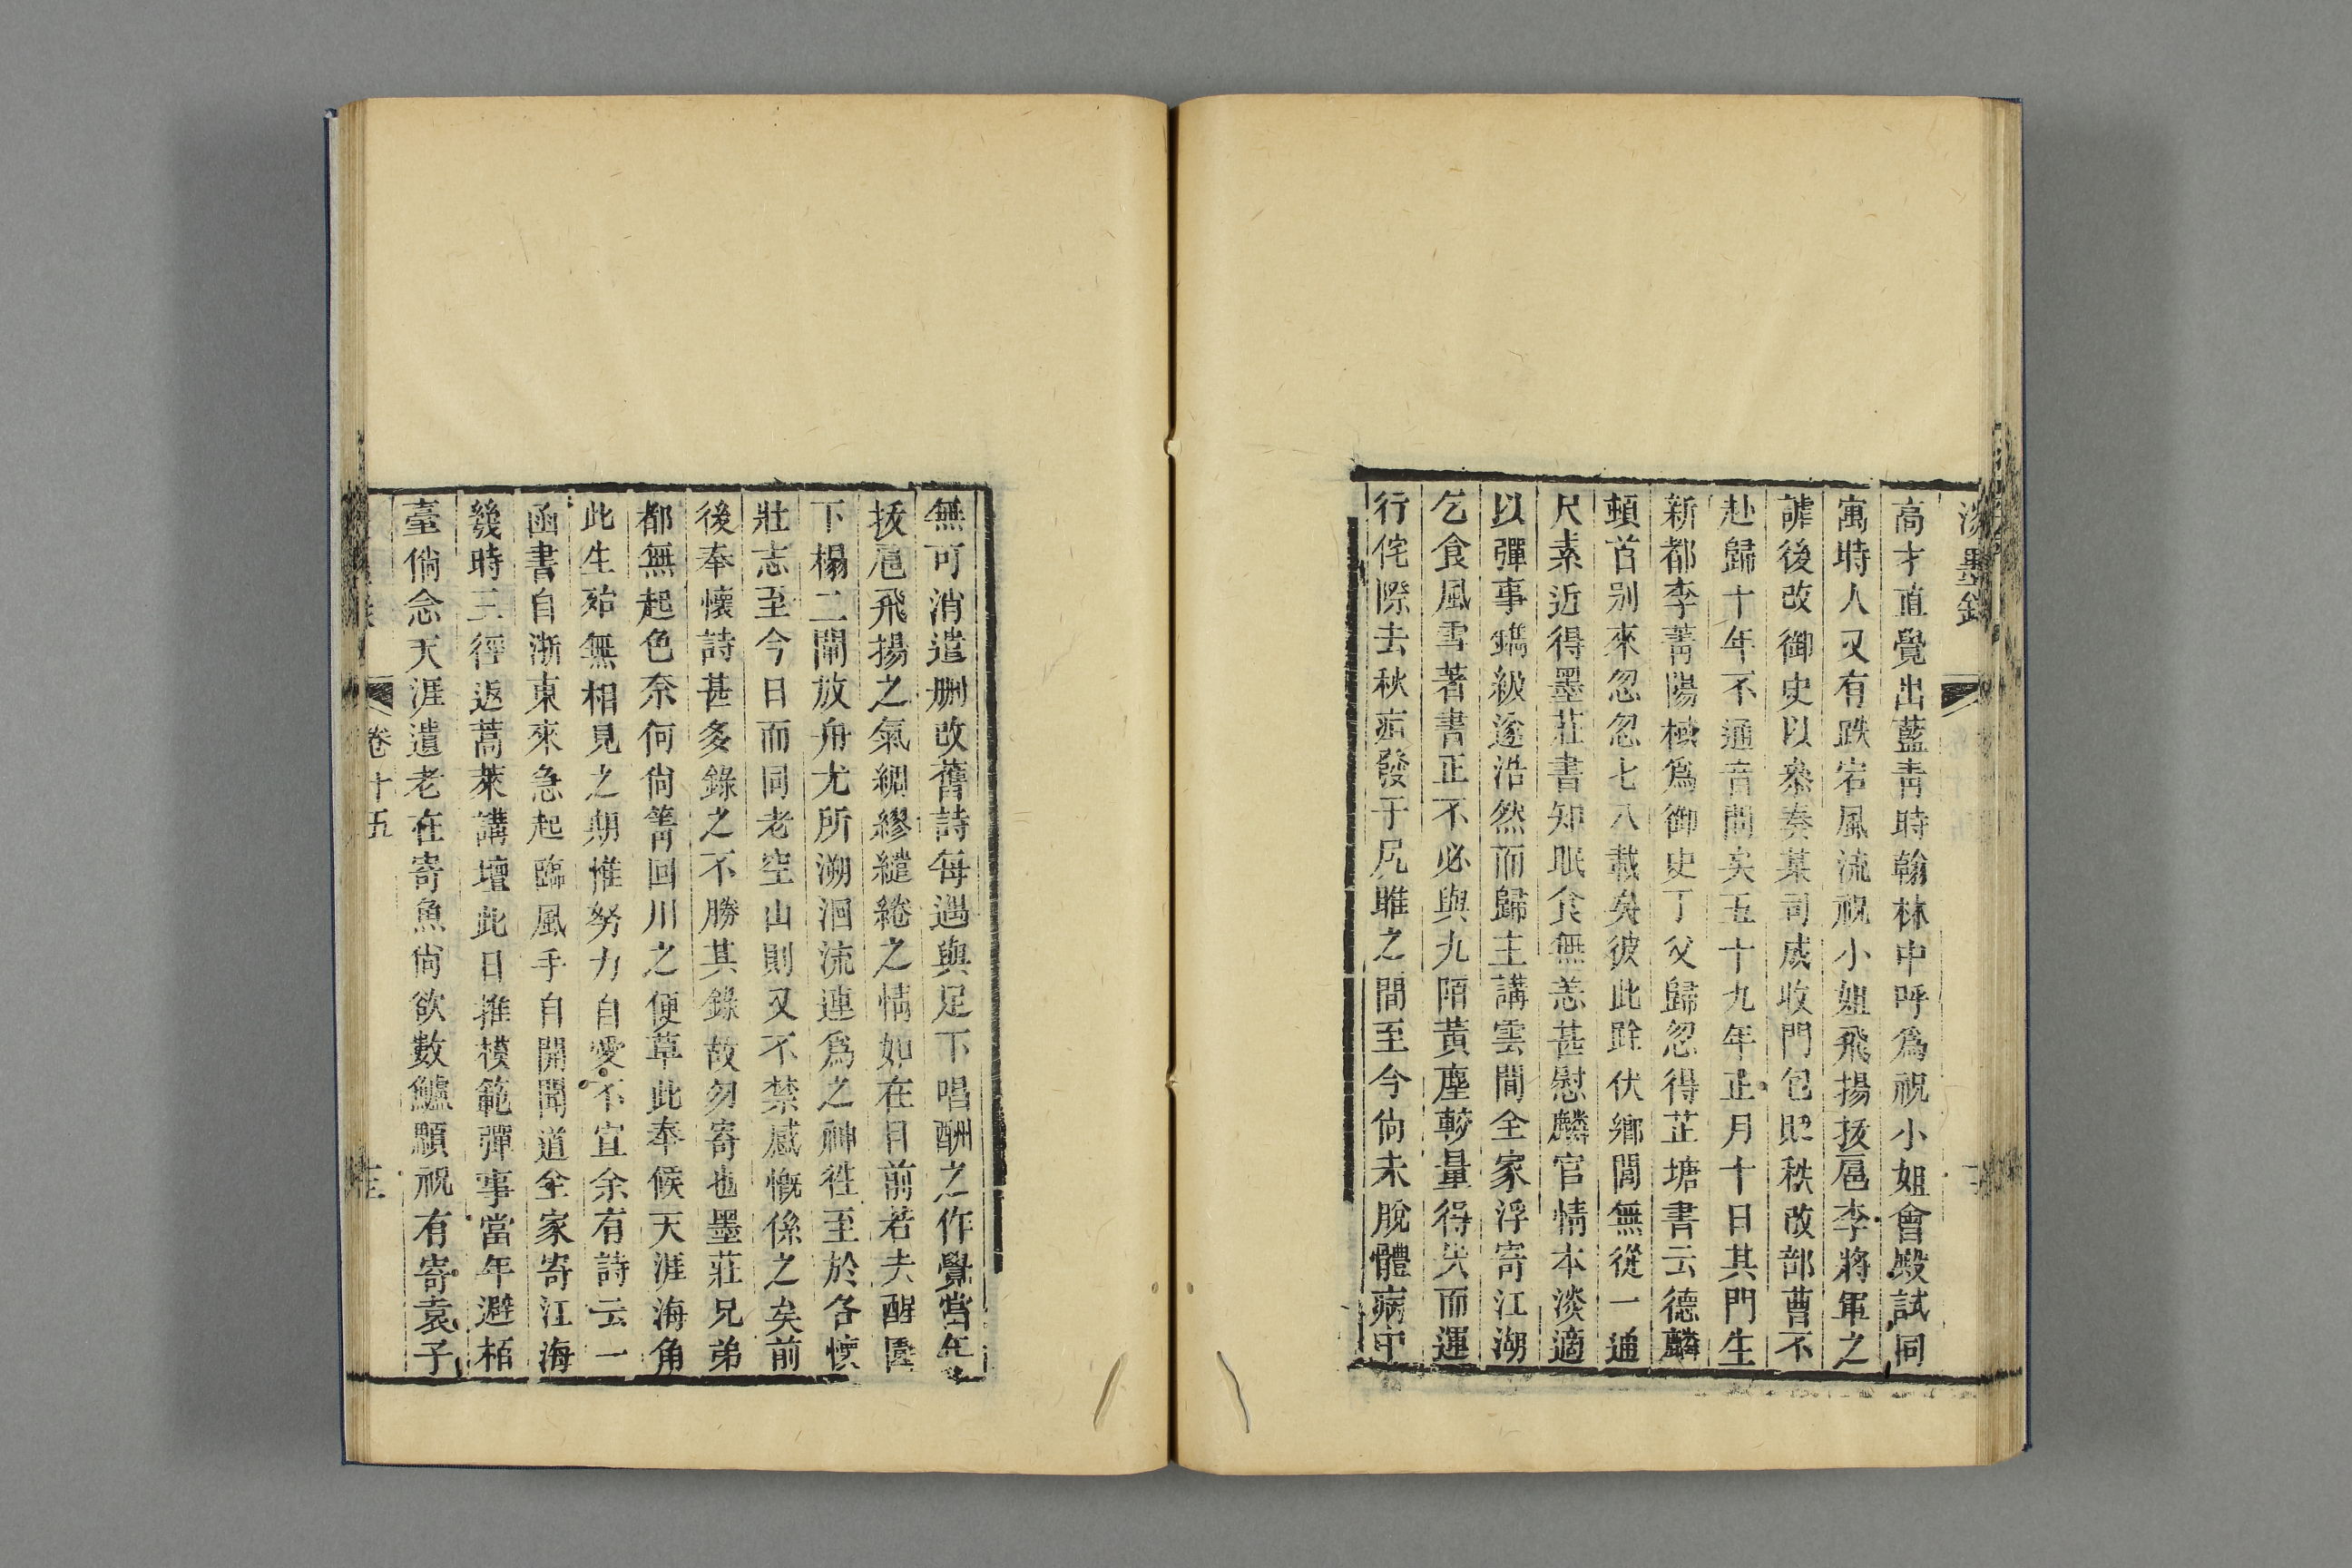 淡墨錄
高才直覺出藍青時翰林中呼爲祝小姐會殿試同
寓時人又有跌宕風流祝小姐飛揚拔扈李將軍之
謔後改御史以叅奏某司成收門包貶秩改部曹不
赴歸十年不通音問矣五十九年正月十日其門生
新都李菁陽棫爲御史丁父歸忽得芷塘書云德麟
頓首别來忽忽七八載矣彼此跧伏鄉閭無從一通
尺素近得墨莊書知眠食無恙甚慰麟官情本淡適
以彈事鐫級遂浩然而歸主講雲間全家浮寄江湖
乞食風雪著書正不必與九陌黃塵較量得失而運
行侘際去秋疽發于尻脽之間至今尙未脫體病中
無可消遣删改舊詩每遇與足下唱酬之作覺當年
拔扈飛揚之氣綢繆繾綣之情如在目前若夫醒園
下榻二閘放舟尤所溯洄流連爲之神徃至於各懷
壯志至今日而同老空山則又不禁感慨係之矣前
後奉懷詩甚多錄之不勝其錄故勿寄也墨莊兄弟
都無起色奈何尙菁回川之便草此奉候天涯海角
此生殆無相見之期惟努力自愛不宜余有詩云一
函書自渐東來急起臨風手自開聞道全家寄江海
幾時三徑返蒿萊講壇此日推模範彈事當年避栢
臺倘念天涯遺老在寄魚尙欲數鱸顋祝有寄袁子
卷十五